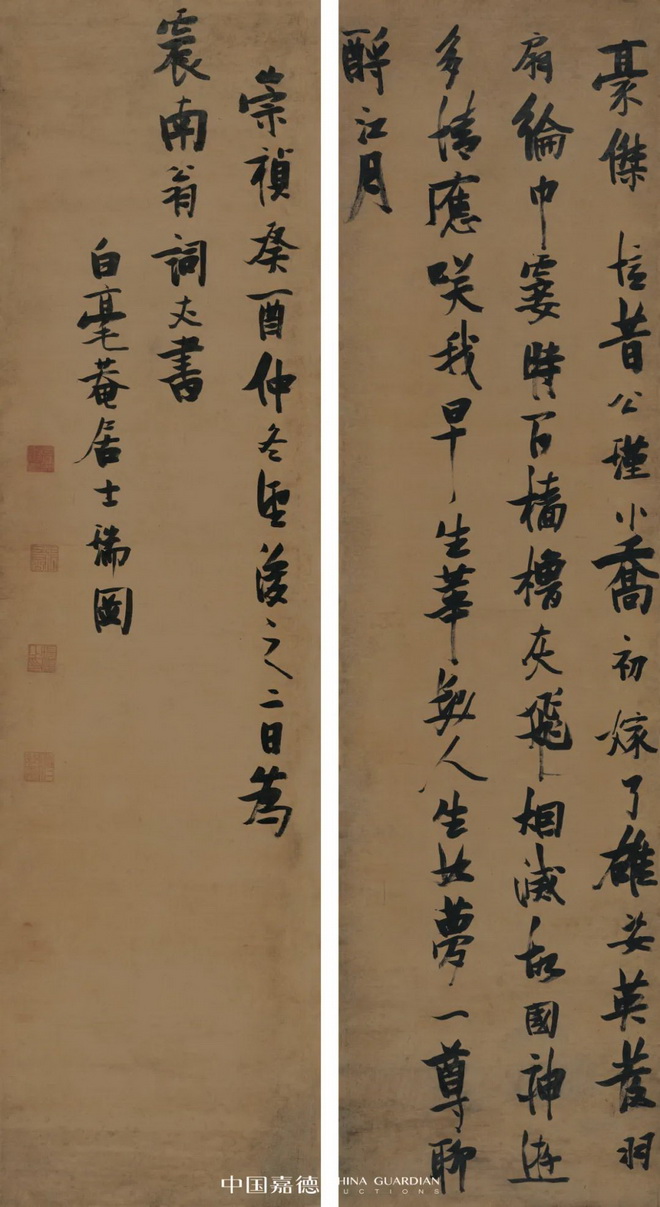 豪傑憶昔公瑾小喬初嫁了雄姿英發羽
扇綸巾霎時間檣櫓灰飛烟滅故國神遊
多情應咲我早生華髮人生如夢一尊聊
酹江月
崇禎癸酉仲冬望後之二日為
震南翁詞丈書
白毫菴居士瑞圖
中国嘉德 CHINA GUARDIAN
AUCTIONS